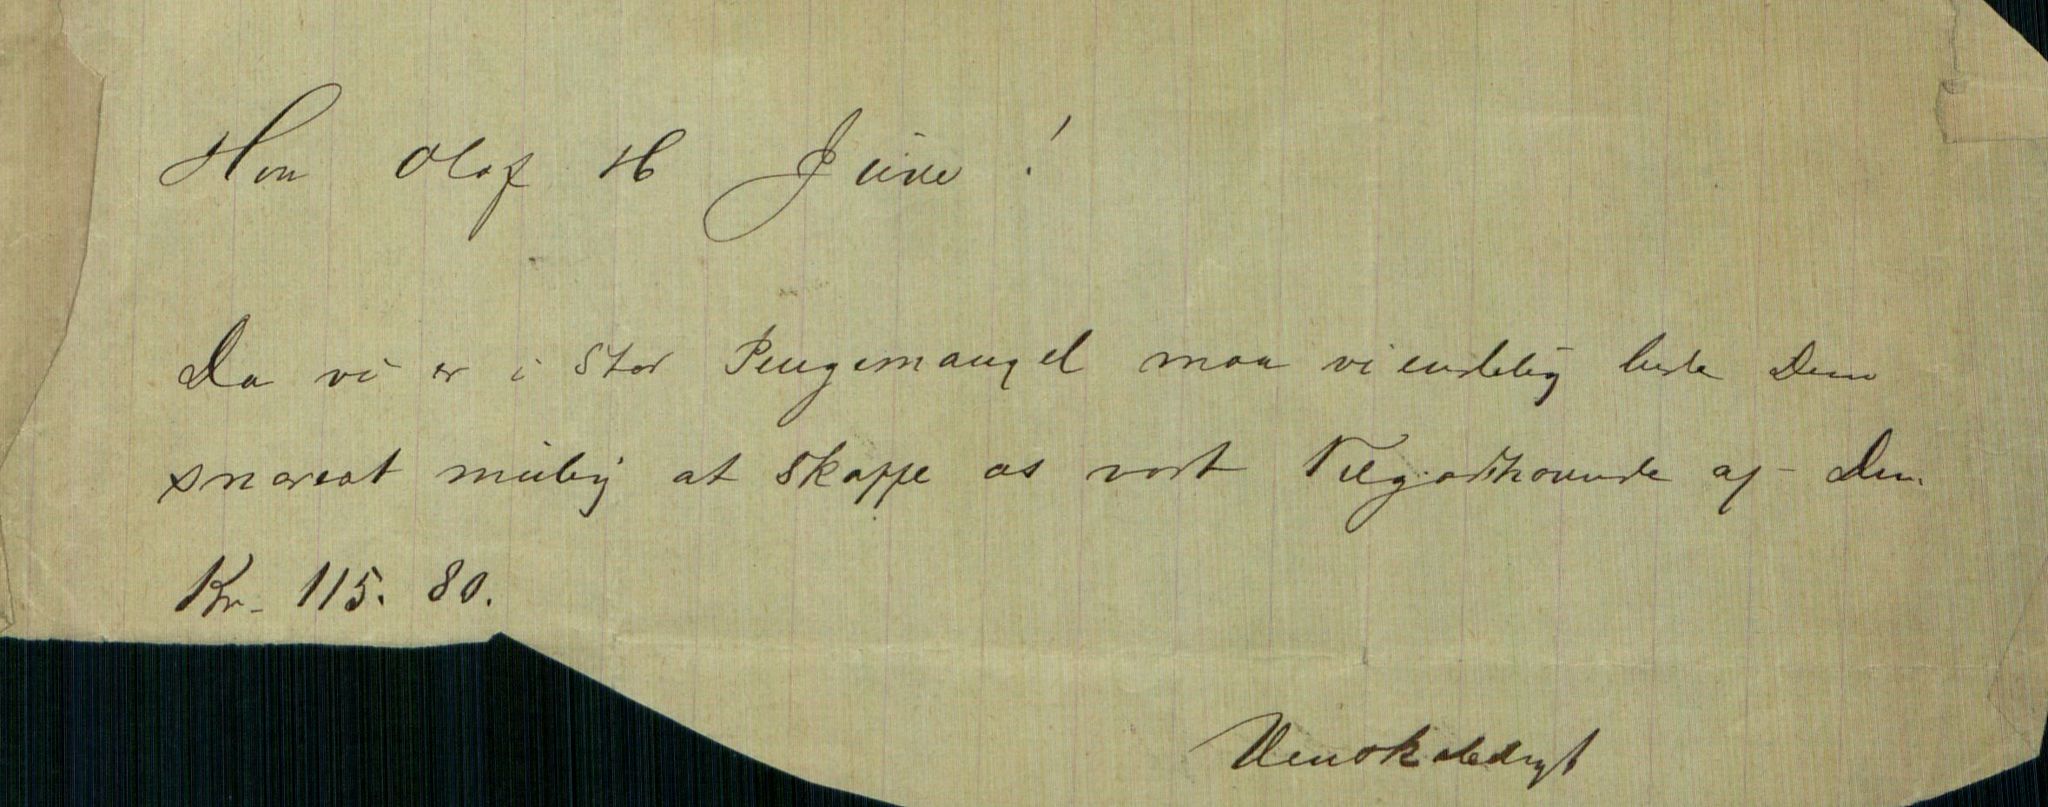 Herr Olaf H Juve!
Da vi er i Stor Pengemangel maa vi endelig bede Dem
snarest mulig at skaffe os vort Tilgodehavende af Dem.
Kr. 115.80.
Venskabeligst